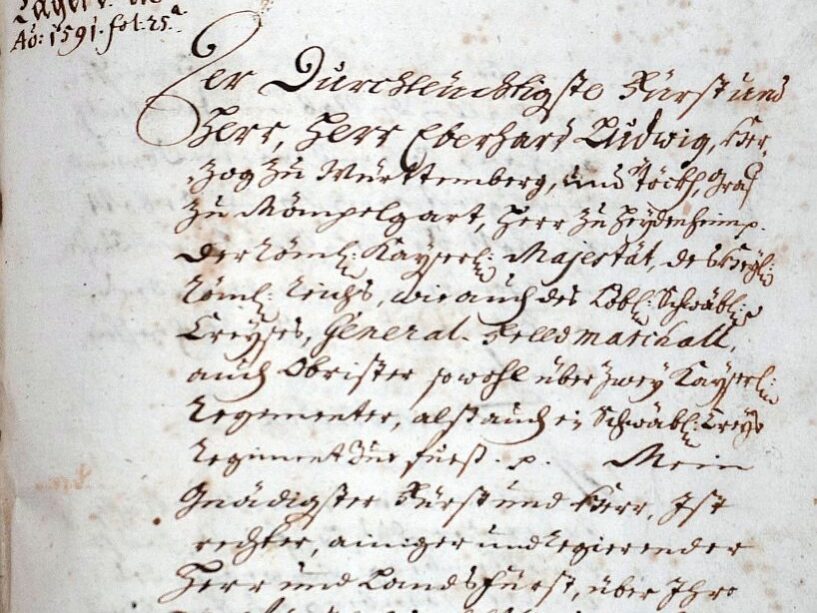 Ao: 1591. fol: 25.a
Der Durchleüchtigste Fürst und
Herr, Herr Eberhart Ludwig, Her,
zog zu Württemberg, und Töckh, Graf
zu Mömpelgart, Herr zu Heydenheim p.
Der Röml: Kayserl: Majestät, des Heyl:
Röml: Reichs, wie auch des Löbl: Schwäbl:
Creyses, General-Feldmarschall,
auch Obrister sowohl über zwey Kayserl:
Regimenter, alß auch ein Schwäbl: Creys
Regiment zu fueß. p. Mein
Gnädigster Fürst und Herr, Ist
rechter, ainiger und Regierender
Herr und Landsfürst, über Ihro